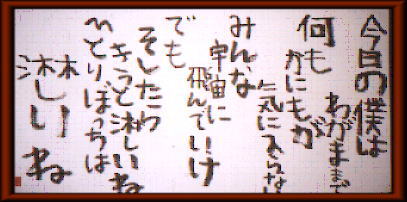 今日の僕は
わがままで
何も
かにもが
気に入らない
みんな
宇宙に
飛んでいけ
でも
そしたら
きっと淋しいね
ひとりぼっちは
淋しいね